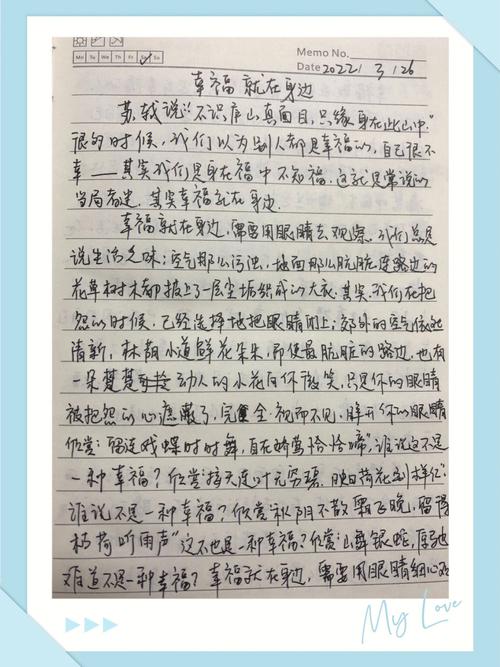 Mo Tu We Th Fr Sa Su
Memo No.
Date 2022 / 3 / 26
幸福就在身边
苏轼说:"不识庐山真面目,只缘身在此山中."
很多时候,我们以为别人都是幸福的,自己很不
幸——其实我们是身在福中不知福.这就是常说的
当局者迷.其实幸福就在身边.
幸福就在身边,需要用眼睛去观察.我们总是
说生活乏味;空气那么污浊,地面那么肮脏连路边的
花草树木都披上了一层尘垢织成的大衣.其实,我们在抱
怨的时候,已经选择地把眼睛闭上;郊外的空气依然
清新,林荫小道鲜花朵朵,即使最肮脏的路边,也有
一朵楚楚动人的小花向你微笑,只是你的眼睛
被抱怨的心态蔽了,完全视而不见.睁开你的眼睛
欣赏:"留连戏蝶时时舞,自在娇莺恰恰啼",谁说这不是
一种幸福?欣赏"接天莲叶无穷碧,映日荷花别样红"
谁说不是一种幸福?欣赏"秋阴不散霜飞晚,留得
枯荷听雨声"这不也是一种幸福?欣赏"山舞银蛇,原驰
难道不是一种幸福?幸福就在身边,需要用眼睛细心
My Love